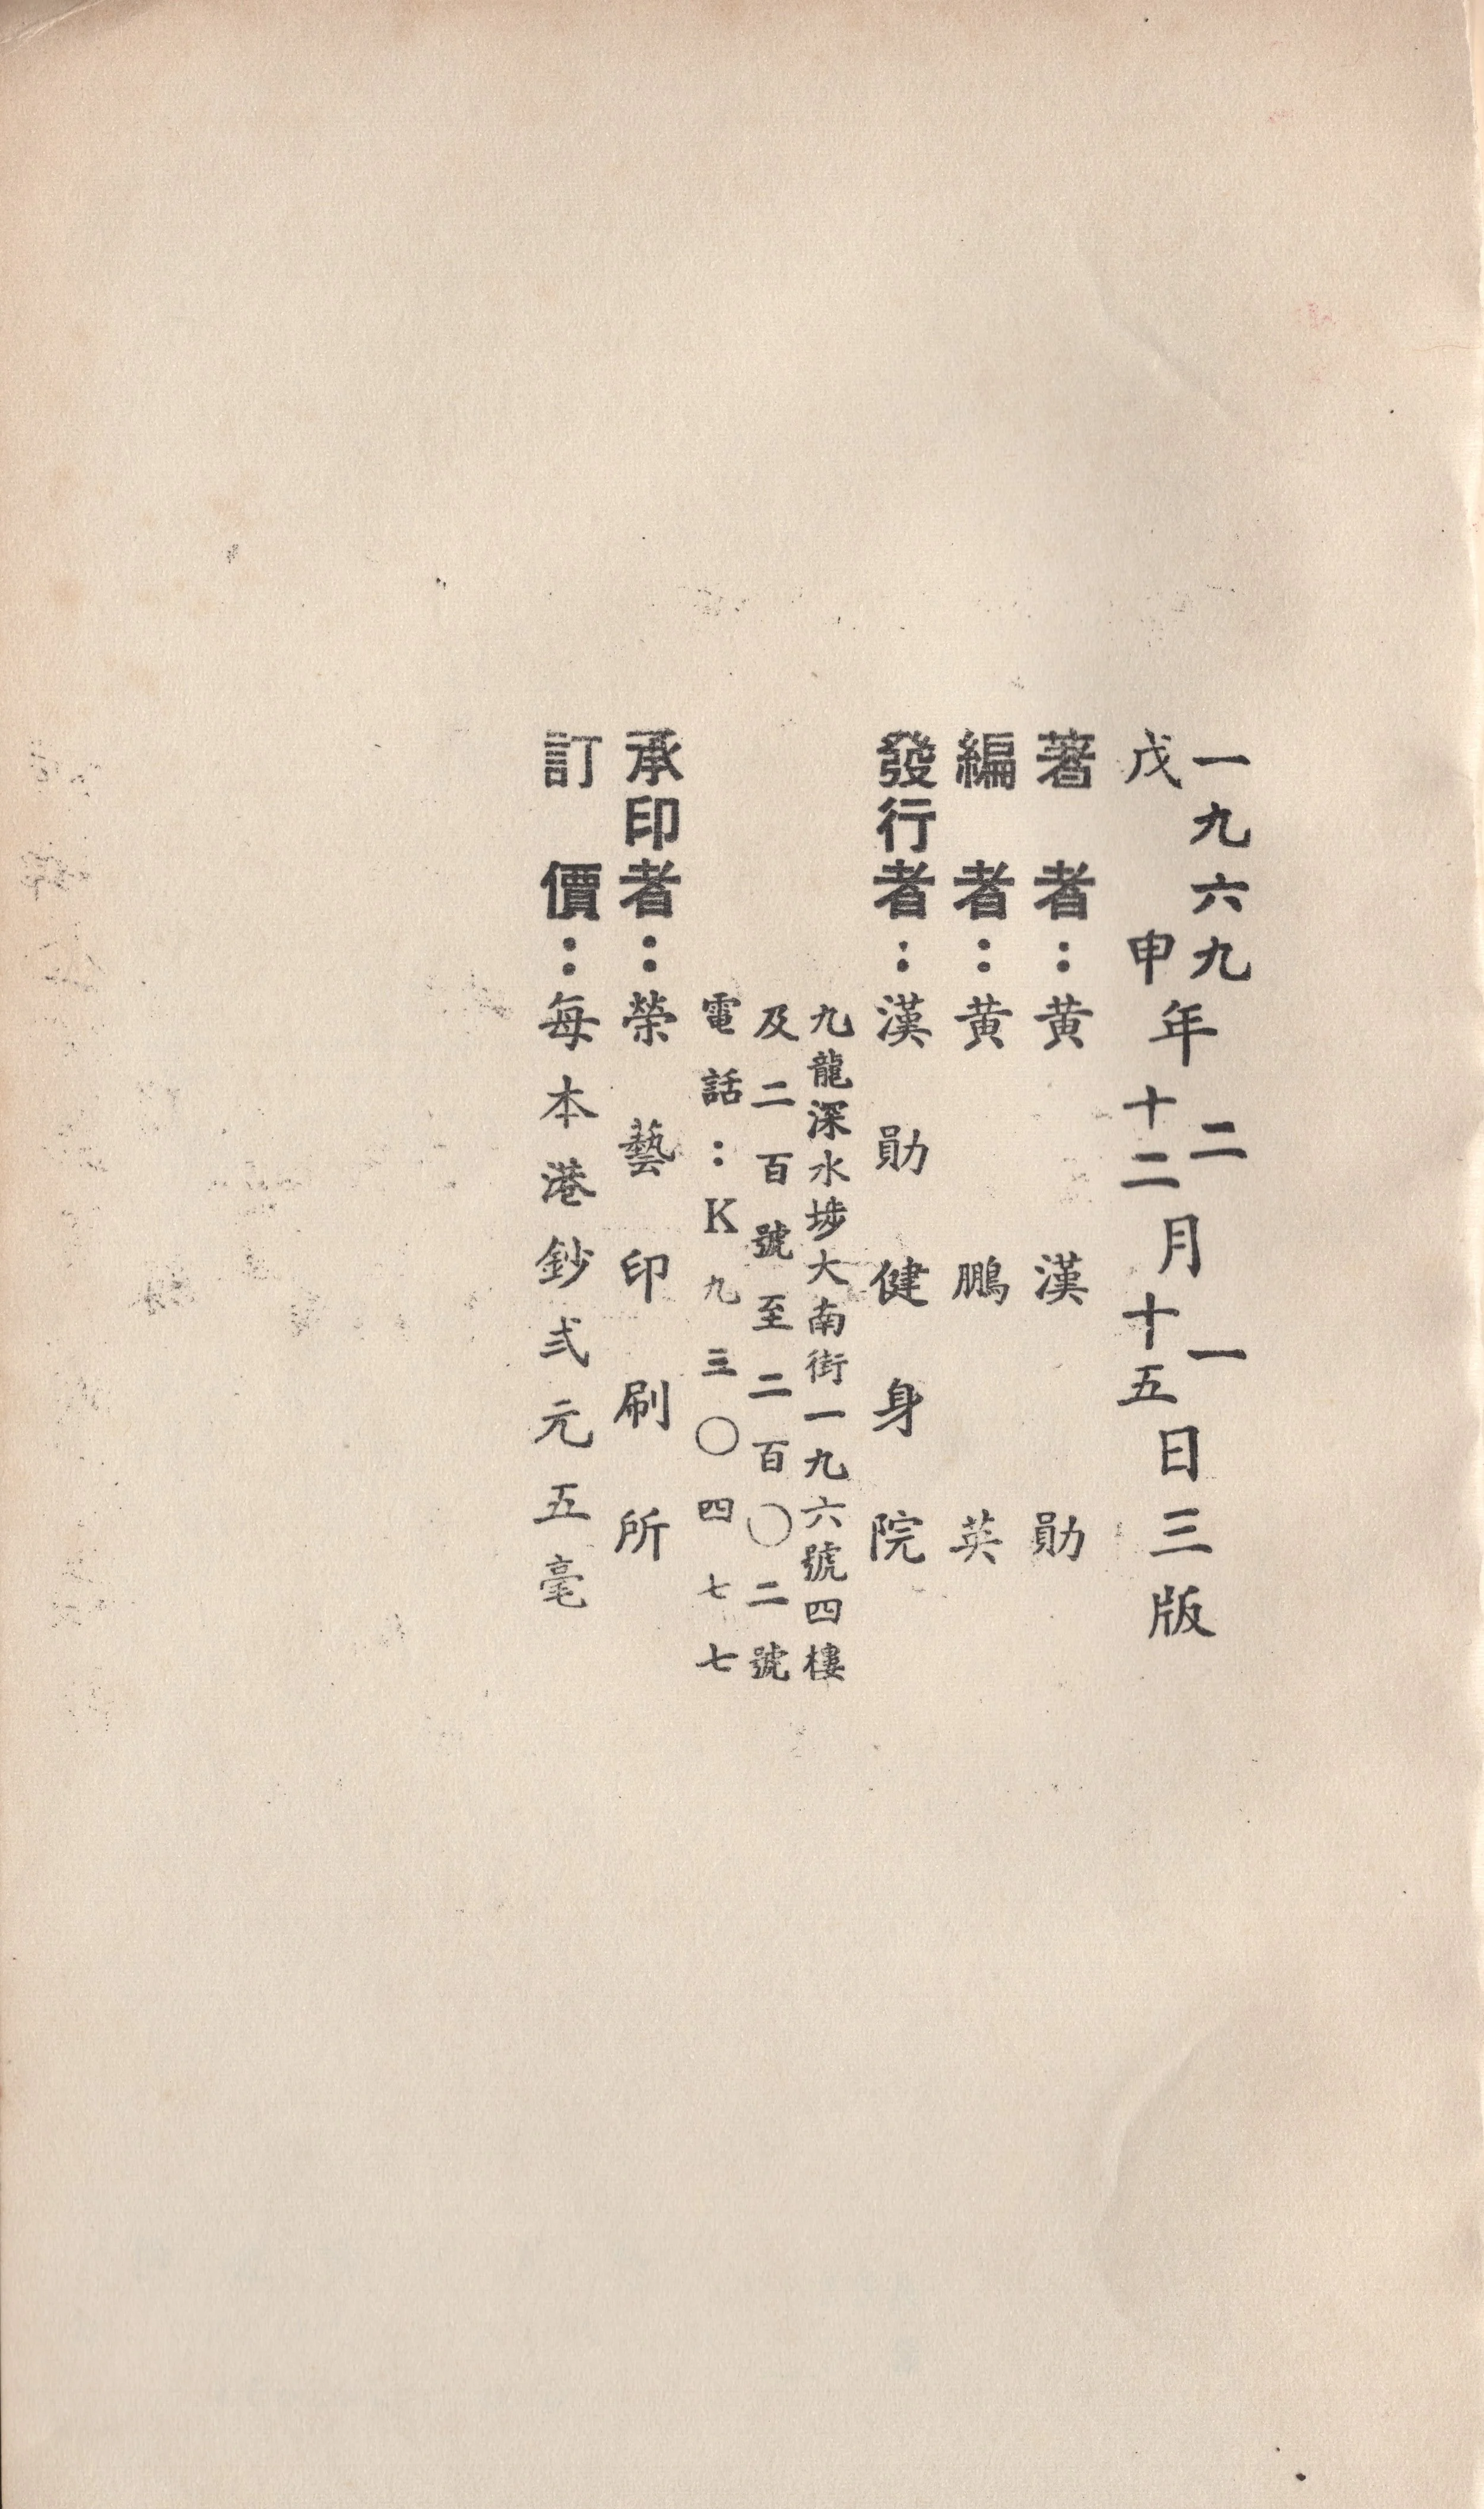 一九六九年二月一日三版
戊申年十二月十五日三版
著者：黄漢勛
編者：黄鵬英
發行者：漢勛健身院
九龍深水埗大南街一九六號四樓
及二百號至二百〇二號
電話：K九三〇四七七
承印者：榮藝印刷所
訂價：每本港鈔弍元五毫